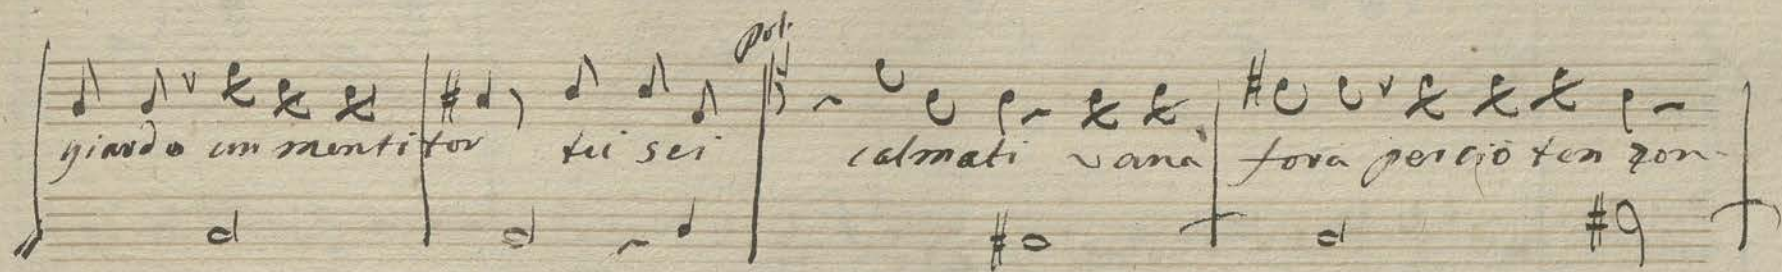 Pol.
giardo un mentitor tu sei calmati vana fora perciò ten zon-